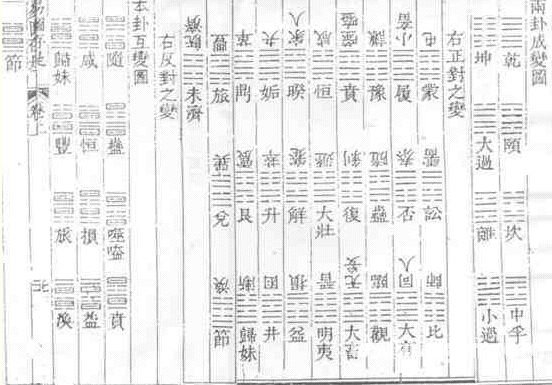 兩卦成變圖
乾 頤 坎 中孚
坤 大過 離 小過
右正對之變
屯 蒙 需 訟 師 比
小畜 履 泰 否 同人 大有
謙 豫 隨 蠱 臨 觀
噬嗑 賁 剝 復 无妄 大畜
咸 恒 遯 大壯 晉 明夷
家人 睽 蹇 解 損 益
夬 姤 萃 升 困 井
革 鼎 震 艮 漸 歸妹
豐 旅 巽 兌 渙 節
既濟 未濟
右反對之變
本卦互變圖
隨 蠱 噬嗑 賁
咸 恒 損 益
歸妹 豐 旅 渙
易圖 卷
節